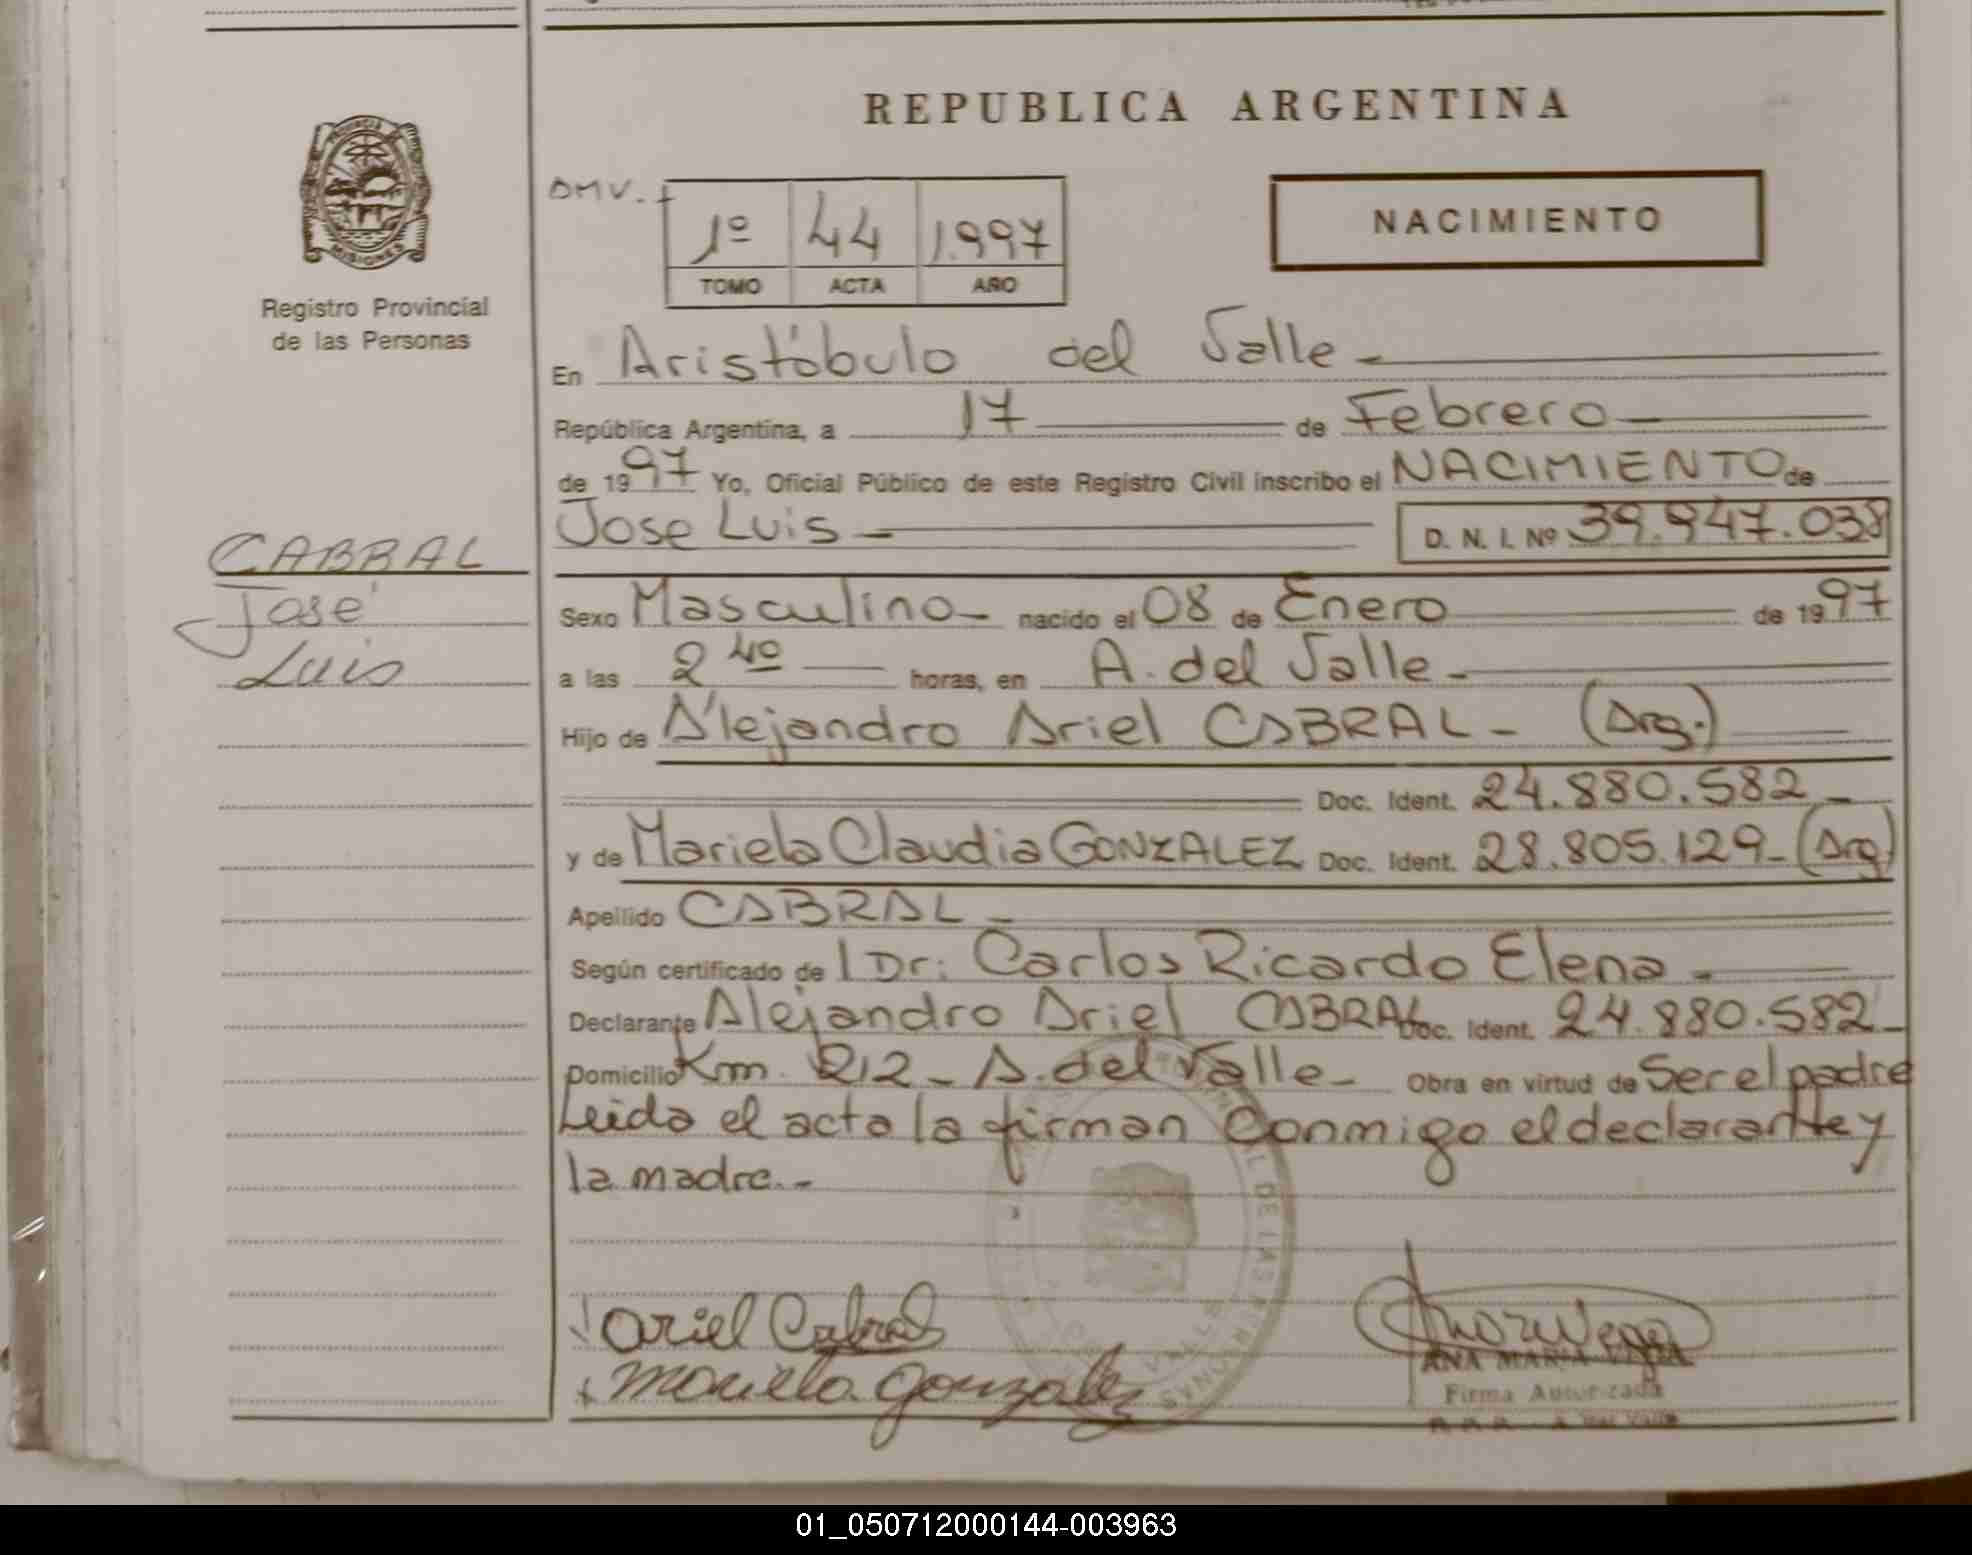 REPUBLICA ARGENTINA
PROVINCIA
MISIONES
Registro Provincial
de las Personas
OMV.-
1º 44 1.997
TOMO ACTA AÑO
NACIMIENTO
En Aristóbulo del Valle -
República Argentina, a 17 de Febrero
de 1997 Yo, Oficial Público de este Registro Civil inscribo el NACIMIENTO de
Jose Luis - D. N. I. Nº 39.947.038
CABRAL
José
Luis
Sexo Masculino - nacido el 08 de Enero de 1997
a las 2 40 horas, en A. del Valle -
Hijo de Alejandro Ariel CABRAL - (Arg.)
Doc. Ident. 24.880.582 -
y de Mariela Claudia GONZALEZ Doc. Ident. 28.805.129 - (Arg)
Apellido CABRAL -
Según certificado de 1 Dr: Carlos Ricardo Elena -
Declarante Alejandro Ariel CABRAL Doc. Ident. 24.880.582 -
Domicilio Km. 212 - A. del Valle - Obra en virtud de Ser el padre
Leida el acta la firman conmigo el declarante y
la madre.-
Ariel Cabral
Mariela Gonzalez
ANA MARIA VEGA
Firma Autorizada
A. del Valle
01_050712000144-003963